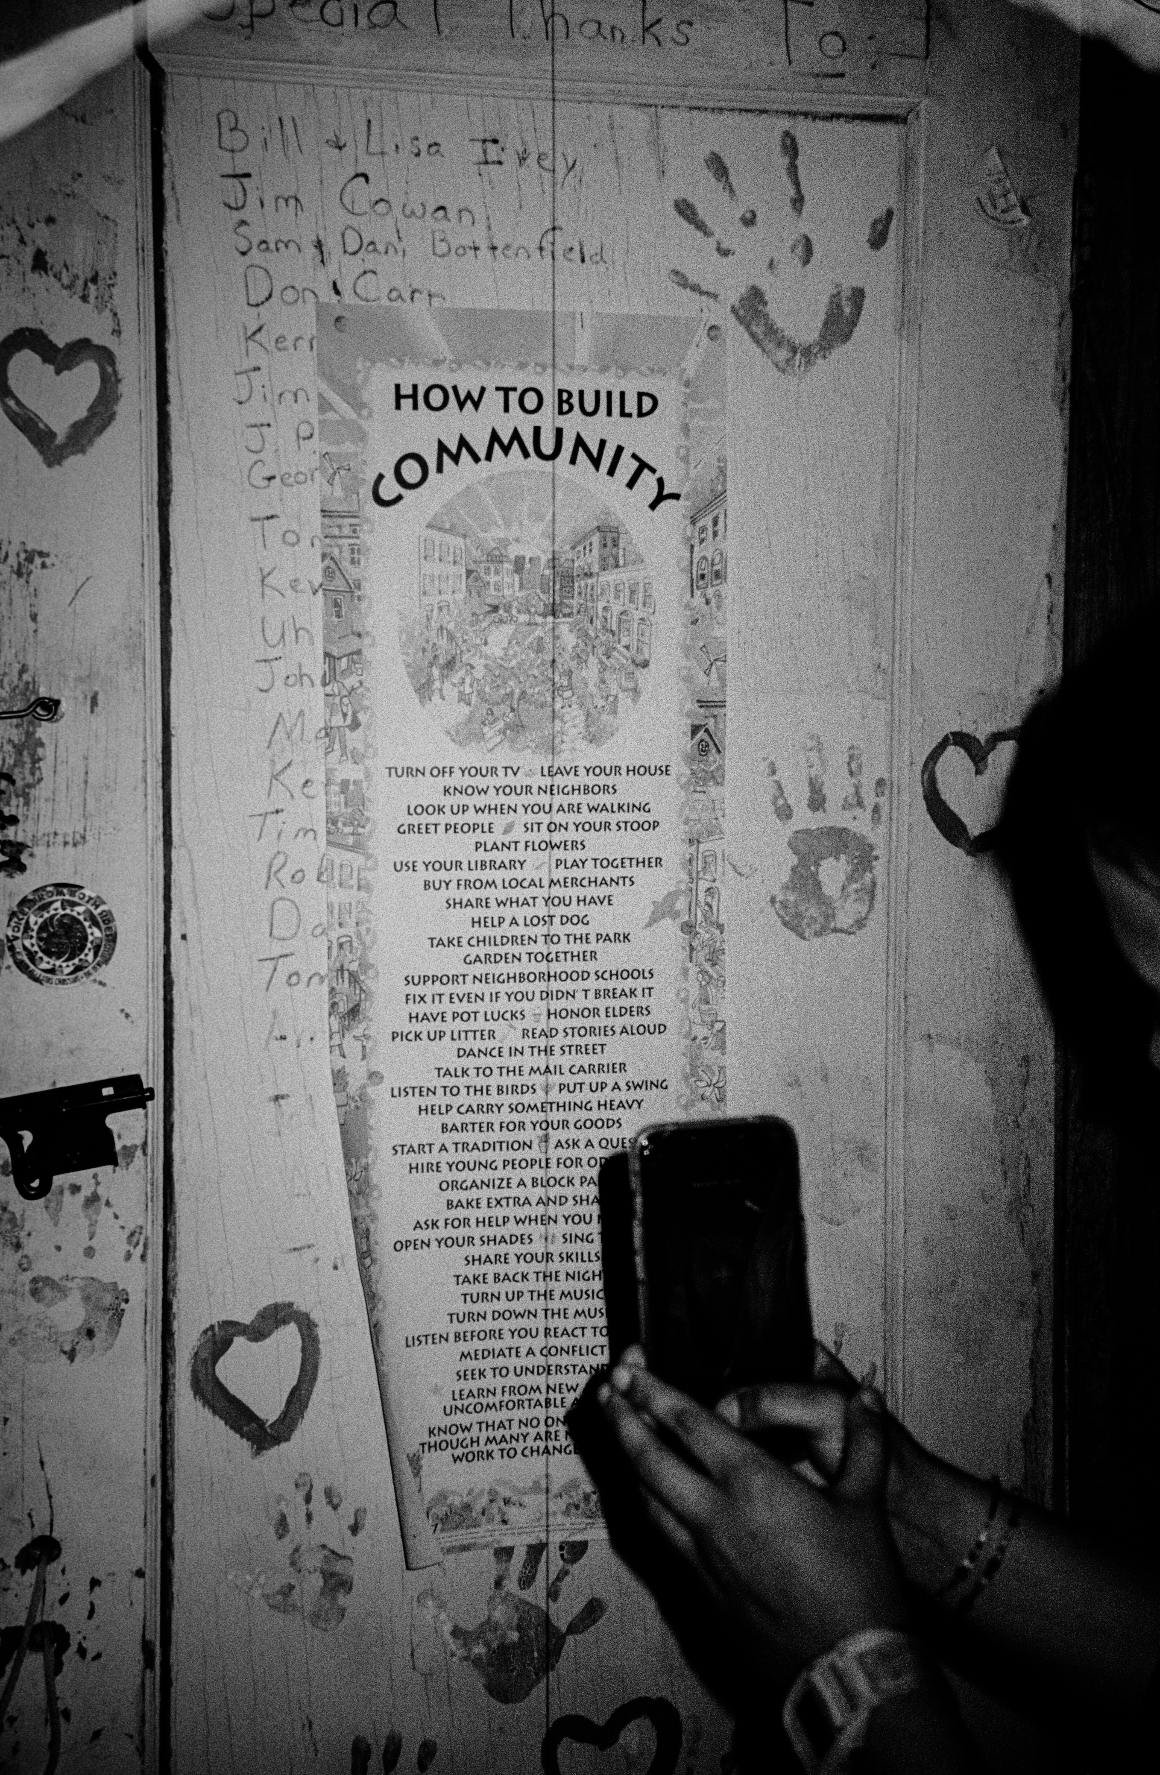 Special Thanks To:
Bill & Lisa Ivey
Jim Cowan
Sam & Dani Bottenfield
Don Carr
Kerr
Jim
J. P.
Geor
Ton
Kev
Uh
Joh
Ma
Ke
Tim
Rob
Da
Tom
HOW TO BUILD
COMMUNITY
TURN OFF YOUR TV LEAVE YOUR HOUSE
KNOW YOUR NEIGHBORS
LOOK UP WHEN YOU ARE WALKING
GREET PEOPLE SIT ON YOUR STOOP
PLANT FLOWERS
USE YOUR LIBRARY PLAY TOGETHER
BUY FROM LOCAL MERCHANTS
SHARE WHAT YOU HAVE
HELP A LOST DOG
TAKE CHILDREN TO THE PARK
GARDEN TOGETHER
SUPPORT NEIGHBORHOOD SCHOOLS
FIX IT EVEN IF YOU DIDN'T BREAK IT
HAVE POT LUCKS HONOR ELDERS
PICK UP LITTER READ STORIES ALOUD
DANCE IN THE STREET
TALK TO THE MAIL CARRIER
LISTEN TO THE BIRDS PUT UP A SWING
HELP CARRY SOMETHING HEAVY
BARTER FOR YOUR GOODS
START A TRADITION ASK A QUES
HIRE YOUNG PEOPLE FOR OD
ORGANIZE A BLOCK PA
BAKE EXTRA AND SHA
ASK FOR HELP WHEN YOU
OPEN YOUR SHADES SING
SHARE YOUR SKILLS
TAKE BACK THE NIGH
TURN UP THE MUSIC
TURN DOWN THE MUS
LISTEN BEFORE YOU REACT TO
MEDIATE A CONFLICT
SEEK TO UNDERSTAND
LEARN FROM NEW
UNCOMFORTABLE A
KNOW THAT NO ON
THOUGH MANY ARE
WORK TO CHANGE